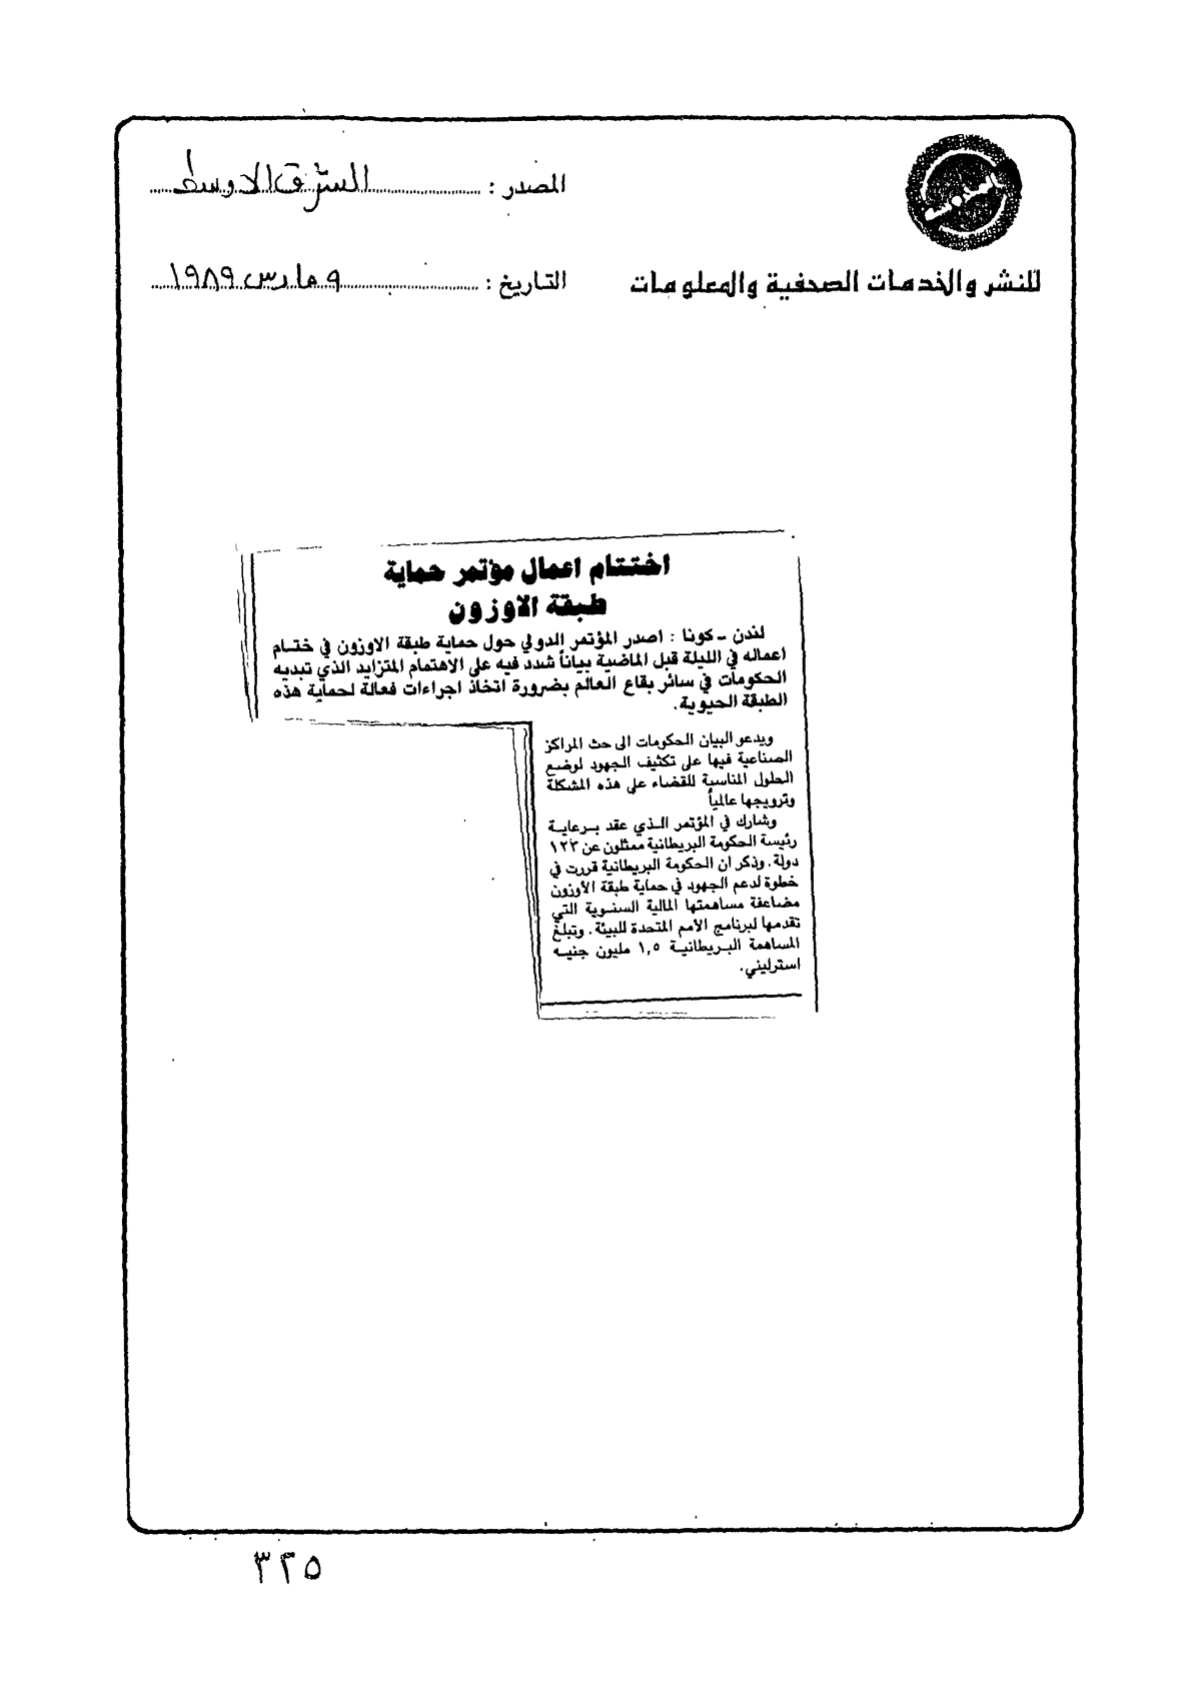 المصدر : الشرق الاوسط
للنشر والخدمات الصحفية والمعلومات
التاريخ : ٩ مارس ١٩٨٩
اختتام اعمال مؤتمر حماية
طبقة الاوزون
لندن ـ كونا : اصدر المؤتمر الدولي حول حماية طبقة الاوزون في ختام
اعماله في الليلة قبل الماضية بياناً شدد فيه على الاهتمام المتزايد الذي تبديه
الحكومات في سائر بقاع العالم بضرورة اتخاذ اجراءات فعالة لحماية هذه
الطبقة الحيوية.
ويدعو البيان الحكومات الى حث المراكز
الصناعية فيها على تكثيف الجهود لوضع
الحلول المناسبة للقضاء على هذه المشكلة
وترويجها عالمياً
وشارك في المؤتمر الذي عقد برعاية
رئيسة الحكومة البريطانية ممثلون عن ١٢٣
دولة. وذكر ان الحكومة البريطانية قررت في
خطوة لدعم الجهود في حماية طبقة الأوزون
مضاعفة مساهمتها المالية السنوية التي
تقدمها لبرنامج الأمم المتحدة للبيئة. وتبلغ
المساهمة البريطانية ١,٥ مليون جنيه
استرليني.
٣٢٥